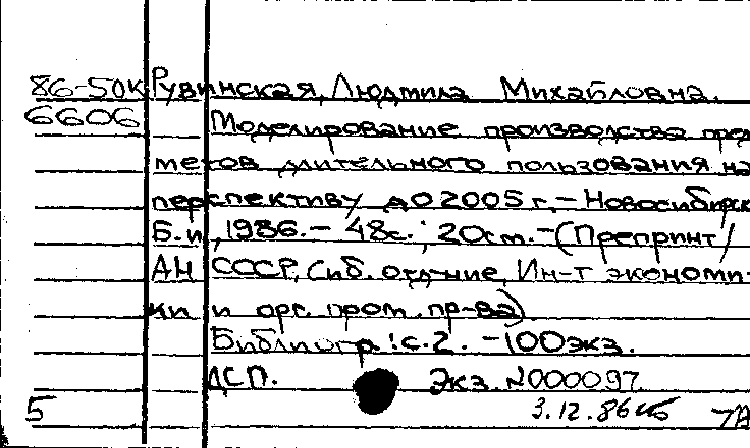 86-50К Рувинская, Людмила Михайловна.
6606 Моделирование производства пред-
метов длительного пользования на
перспективу до 2005 г. - Новосибирск
Б.и., 1986. - 48с.; 20см. - (Препринт/
АН СССР, Сиб. отд-ние, Ин-т экономи-
ки и орг. пром. пр-ва).
Библиогр.: с.2. - 100экз.
ДСП. Экз. N000097
5 3.12.86